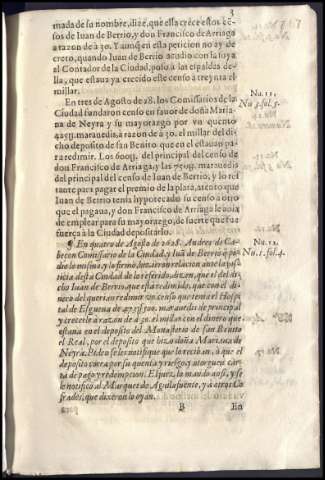 3
mada de su nombre, dize, que ella crece estos cen-
sos de Iuan de Berrio, y don Francisco de Arriaga
a razon de a 30. Y aunq̃ en esta peticion no ay de
creto, quando Iuan de Berrio acudio con la suya
al Contador de la Ciudad, puso a la espalda de-
lla, que estaua ya crecido este censo a treynta el
millar.
En tres de Agosto de 28. los Comissarios de la
Ciudad fundaron censo en fauor de doña Maria-
na de Neyra y su mayorazgo por vn quento
marauedis, a razon de a 30. el millar del di-
cho deposito de san Benito que en el estauan pa-
ra redimir. Los del principal del censo de
don Francisco de Arriaga, y las marauedis
del principal del censo de Iuan de Berrio, y lo res
tante para pagar el premio de la plata, atento que
Iuan de Berrio tenia hypotecado su censo a otro
que el pagaua, y don Francisco de Arriaga le auia
de emplear para su mayorazgo, de suerte que fue
fuerça a la Ciudad depositarlo.
¶ En quatro de Agosto de 1628. Andres de Ca-
beçon Comissario de la Ciudad, y Iuã de Berrio q̃ pi-
dio lo mismo, y lo firmò, hazen relacion ante la jus-
ticia desta Ciudad de lo referido, dizen, que el del di-
cho Iuan de Berrio, que està redimido, que con el di-
nero del querian redimir vn censo que tenia el Hospi-
tal de Esgueua de marauedis de principal
y crecerle a razon de a 30. el millar con el dinero que
estaua en el deposito del Monasterio de san Benito
el Real, por el deposito que hizo doña Mariana de
Neyra. Piden se les notifique que lo reciban, ò que el
deposito corra por su quenta y riesgo, y otorguen car-
ta de pago y redempcion. El juez lo mandò ansi, y se
le notificò al Marques de Aguilafuente, y a otros Co
frades, que dixeron lo oyan.
B
En
Nu. 11.
Nu. 3. fol. 5.
Nu. 12.
Nu. 1. fol. 4.